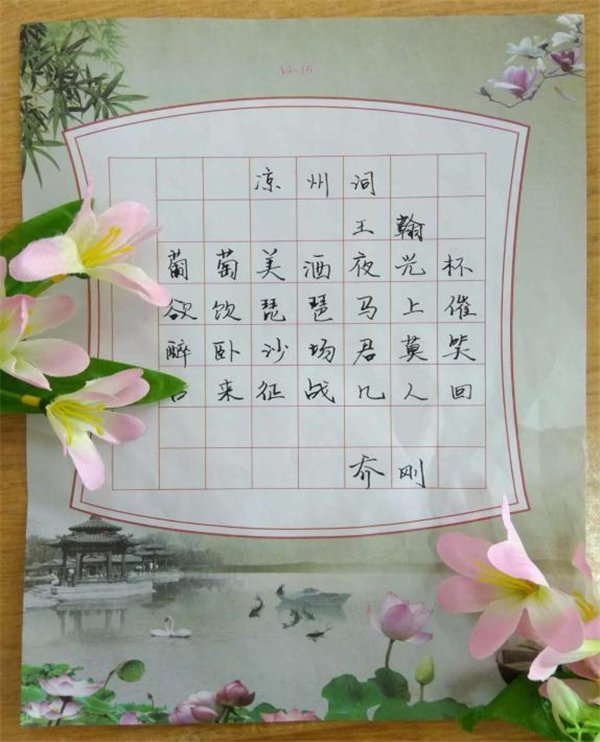 A4-16
凉州词
王翰
葡萄美酒夜光杯
欲饮琵琶马上催
醉卧沙场君莫笑
来征战几人回
乔刚